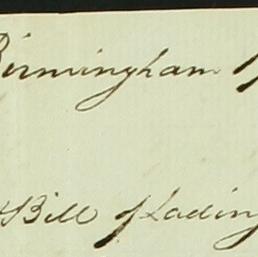 Birmingham
Bill of Lading